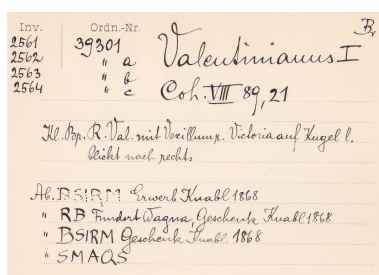 Inv. Ordn.-Nr. Br
2561 39301 Valentinianus I
2562 " a
2563 " b Coh. VIII 89, 21
2564 " c
Kl. Br. R. Val. mit Vexillum r. Victoria auf Kugel l.
blickt nach rechts
Ab. BSIRM Erwerb Knabl 1868
" RB Fundort Wagna, Geschenk Knabl 1868
" BSIRM Geschenk Knabl 1868
" SMAQS